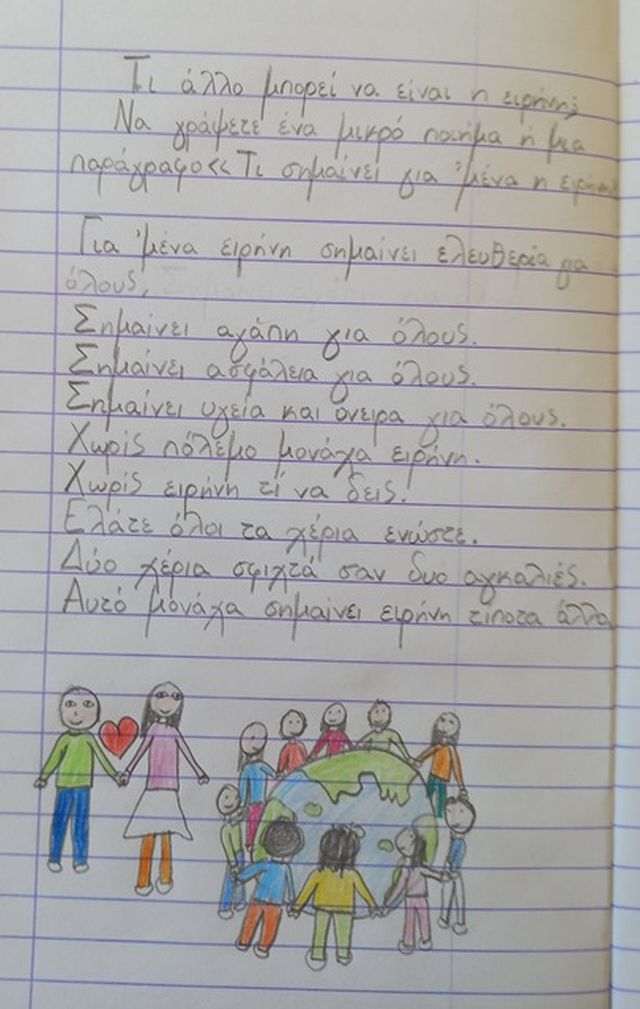 Τι άλλο μπορεί να είναι η ειρήνη;
Να γράψετε ένα μικρό ποιήμα ή μια
παράγραφο << Τι σημαίνει για 'μένα η ειρήνη
Για 'μένα ειρήνη σημαίνει ελευθερία για
όλους,
Σημαίνει αγάπη για όλους.
Σημαίνει ασφάλεια για όλους.
Σημαίνει υγεία και όνειρα για όλους.
Χωρίς πόλεμο μονάχα ειρήνη.
Χωρίς ειρήνη τί να δεις!
Ελάτε όλοι τα χέρια ενώστε.
Δύο χέρια σφιχτά σαν δυο αγκαλιές.
Αυτό μονάχα σημαίνει ειρήνη τίποτα άλλο